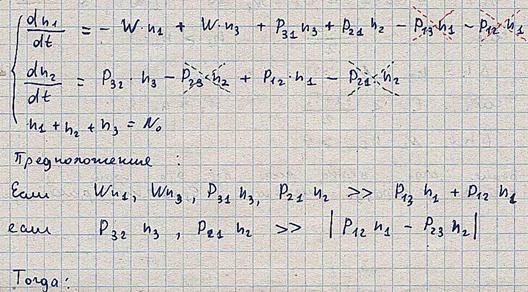 dn₁/dt = - W·n₁ + W·n₃ + P₃₁ n₃ + P₂₁ n₂ - P₁₃ n₁ - P₁₂ n₁
dn₂/dt = P₃₂·n₃ - P₂₃ n₂ + P₁₂·n₁ - P₂₁ n₂
n₁ + n₂ + n₃ = N₀
Предположение :
Если Wn₁, Wn₃, P₃₁ n₃, P₂₁ n₂ >> P₁₃ n₁ + P₁₂ n₁
если P₃₂ n₃, P₂₁ n₂ >> |P₁₂ n₁ - P₂₃ n₂|
Тогда: